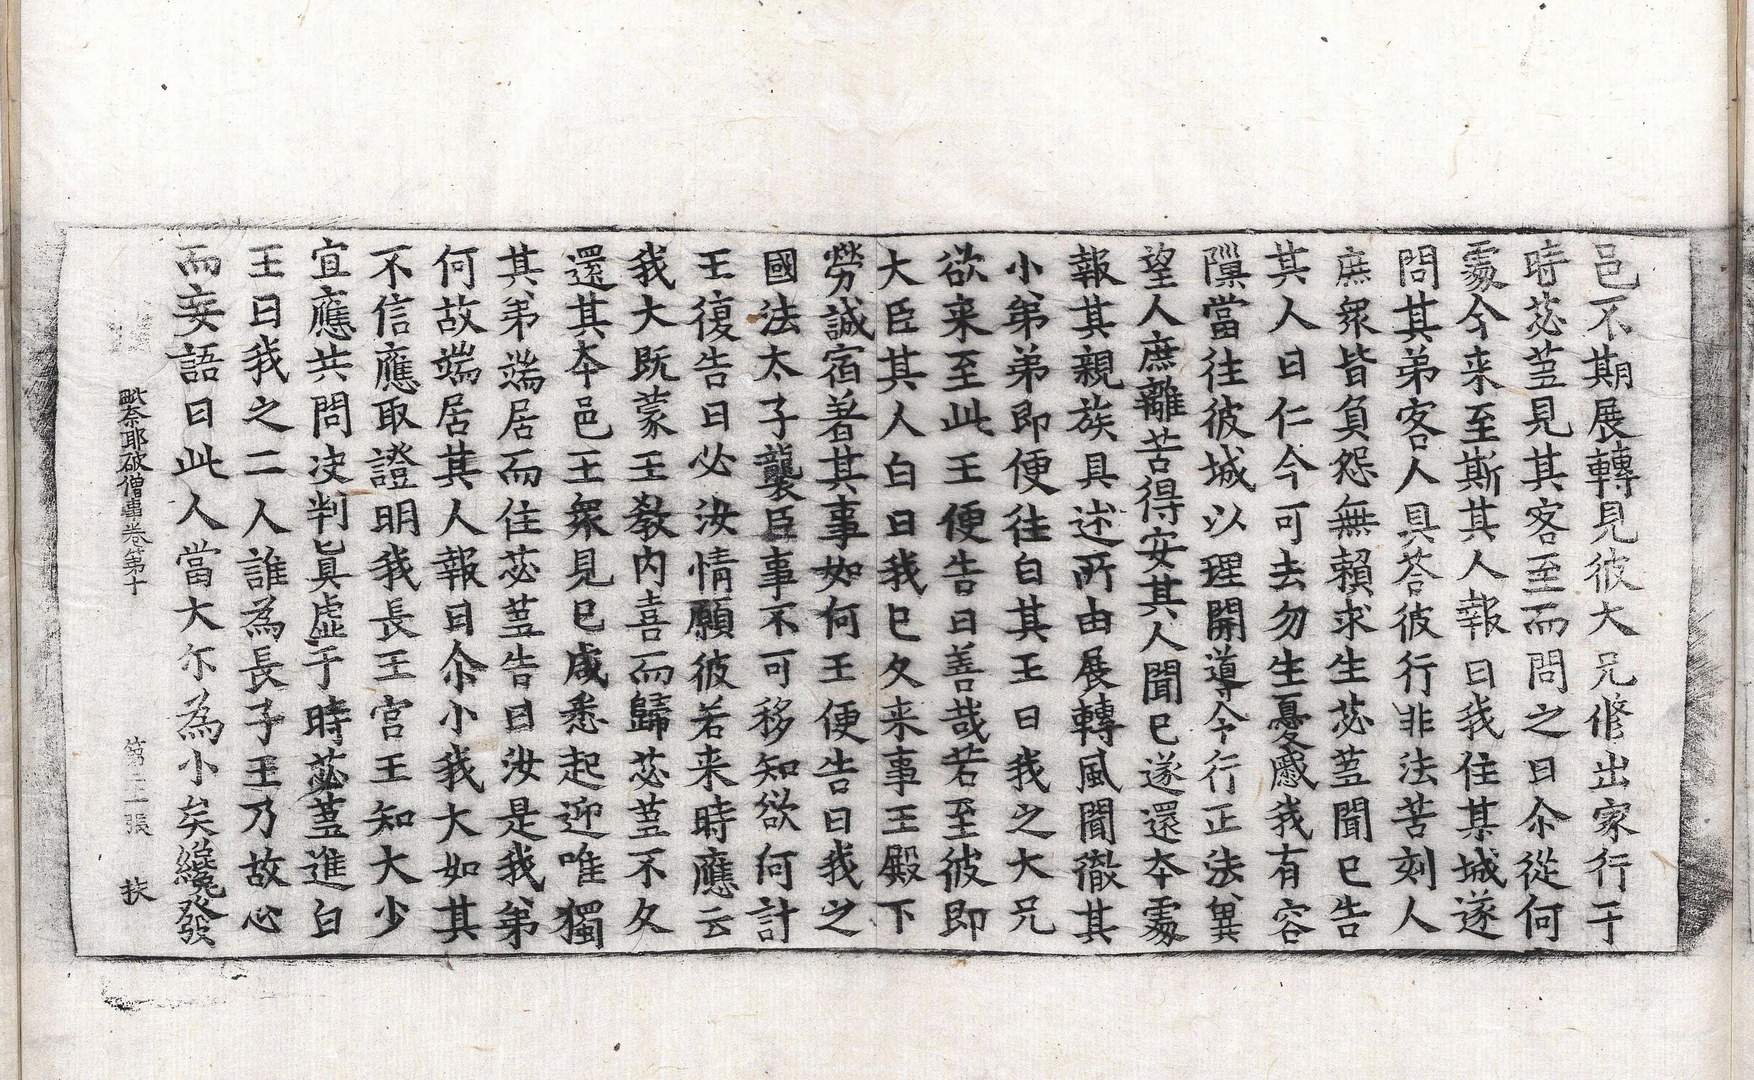 邑不期展轉見彼大兄修出家行于
時苾蒭見其客至而問之曰尒從何
處今来至斯其人報曰我住某城遂
問其弟客人具荅彼行非法苦刻人
庶衆皆負怨無賴求生苾蒭聞已告
其人曰仁今可去勿生憂慼我有容
隟當往彼城以理開導令行正法兾
望人庶離苦得安其人聞已遂還本處
報其親族具述所由展轉風聞徹其
小弟弟即便往白其王曰我之大兄
欲来至此王便告曰善哉若至彼即
大臣其人白曰我已久来事王殿下
勞誠宿著其事如何王便告曰我之
國法太子襲臣事不可移知欲何計
王復告曰必汝情願彼若来時應云
我大既蒙王教内喜而歸苾蒭不久
還其本邑王衆見已咸悉起迎唯獨
其弟端居而住苾蒭告曰汝是我弟
何故端居其人報曰尒小我大如其
不信應取證明我長王宫王知大少
宜應共問决判真虛于時苾蒭進白
王曰我之二人誰為長子王乃故心
而妄語曰此人當大尒為小矣纔發
毗奈耶破僧事卷第十　第二張　扶